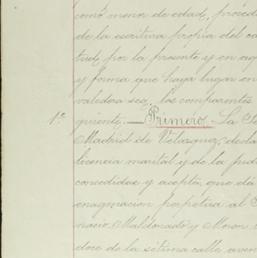 como menor de edad, procede
de la escritura propia del ca
tud, por la presente y en aque
y forma que haya lugar en
valedera sea, los comparentes
1º guiente: — Primero. La Se
Madrid de Velasquez, decla
licencia marital y de la jud
concedidas y acepta, que da
enagenacion perpetua al
nacio Maldonado y Moron
doce de la sétima calle, aven